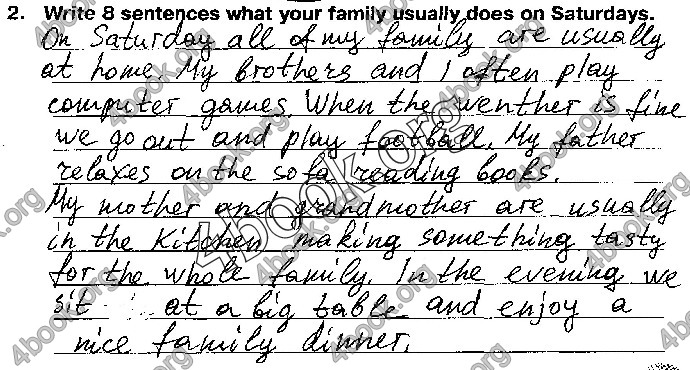 2. Write 8 sentences what your family usually does on Saturdays.
On Saturday all of my family are usually
at home. My brothers and I often play
computer games. When the wenther is fine
we go out and play football. My father
relaxes on the sofa reading books.
My mother and grandmother are usually
in the Kitchen making something tasty
for the whole family. In the evening we
sit at a big table and enjoy a
nice family dinner.
4book.org